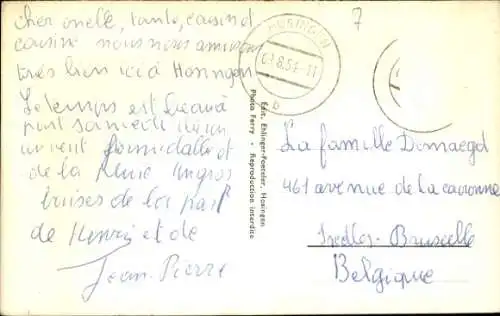 cher oncle, tante, cousin et
cousine nous nous amusons
très bien ici à Hosingen
Le temps est beau
sauf samedi
un vent formidable et
de la pluie un gros
baises de la part
de Henri et de
Jean-Pierre
HOSINGEN
b
7
Edit. Ehlinger-Foetzler, Hosingen
Photo Ferry - Reproduction interdite
La famille
461 avenue de la couronne
Ixelles-Bruxelle
Belgique